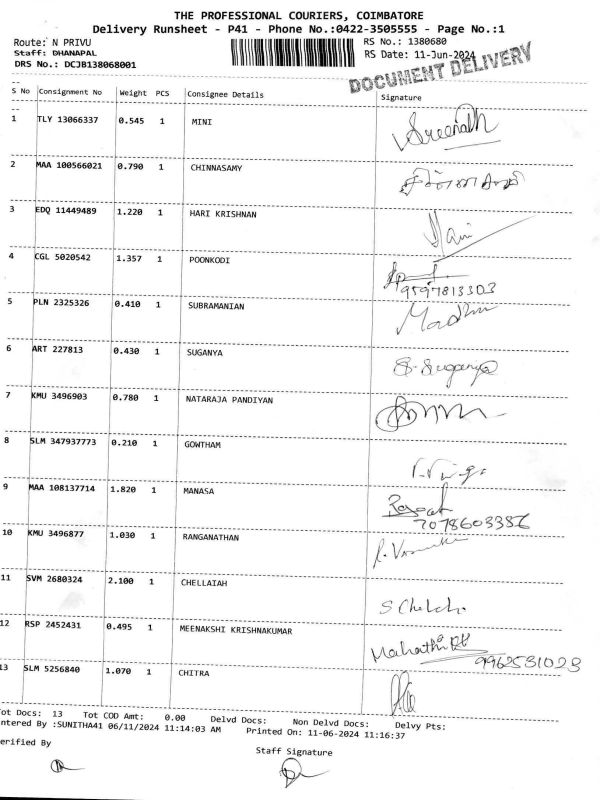 THE PROFESSIONAL COURIERS, COIMBATORE
Delivery Runsheet - P41 - Phone No.:0422-3505555 - Page No.:1
Route: N PRIVU RS No.: 1380680
Staff: DHANAPAL RS Date: 11-Jun-2024
DRS No.: DCJB138068001
DOCUMENT DELIVERY
S No Consignment No Weight PCS Consignee Details Signature
1 TLY 13066337 0.545 1 MINI Sreenath
2 MAA 100566021 0.790 1 CHINNASAMY
3 EDQ 11449489 1.220 1 HARI KRISHNAN Hari
4 CGL 5020542 1.357 1 POONKODI
9597813303
5 PLN 2325326 0.410 1 SUBRAMANIAN
6 ART 227813 0.430 1 SUGANYA S. Suganya
7 KMU 3496903 0.780 1 NATARAJA PANDIYAN
8 SLM 347937773 0.210 1 GOWTHAM
9 MAA 108137714 1.820 1 MANASA
7078603386
10 KMU 3496877 1.030 1 RANGANATHAN
11 SVM 2680324 2.100 1 CHELLAIAH
12 RSP 2452431 0.495 1 MEENAKSHI KRISHNAKUMAR
9962531023
13 SLM 5256840 1.070 1 CHITRA
Tot Docs: 13 Tot COD Amt: 0.00 Delvd Docs: Non Delvd Docs: Delvy Pts:
ntered By :SUNITHA41 06/11/2024 11:14:03 AM Printed On: 11-06-2024 11:16:37
erified By Staff Signature